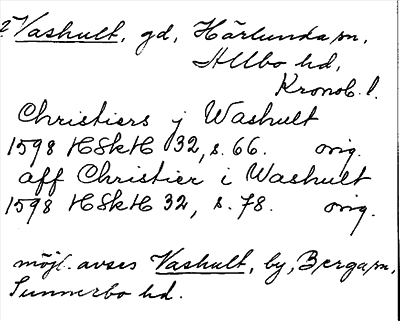 ? Vashult, gd, Härlunda sn,
Allbo hd,
Kronob. l.
Christiers j Washult
1598 HSkH 32, s. 66. orig.
aff Christier i Washult
1598 HSkH 32, s. 78. orig.
möjl. avses Vashult, by, Berga sn,
Sunnerbo hd.